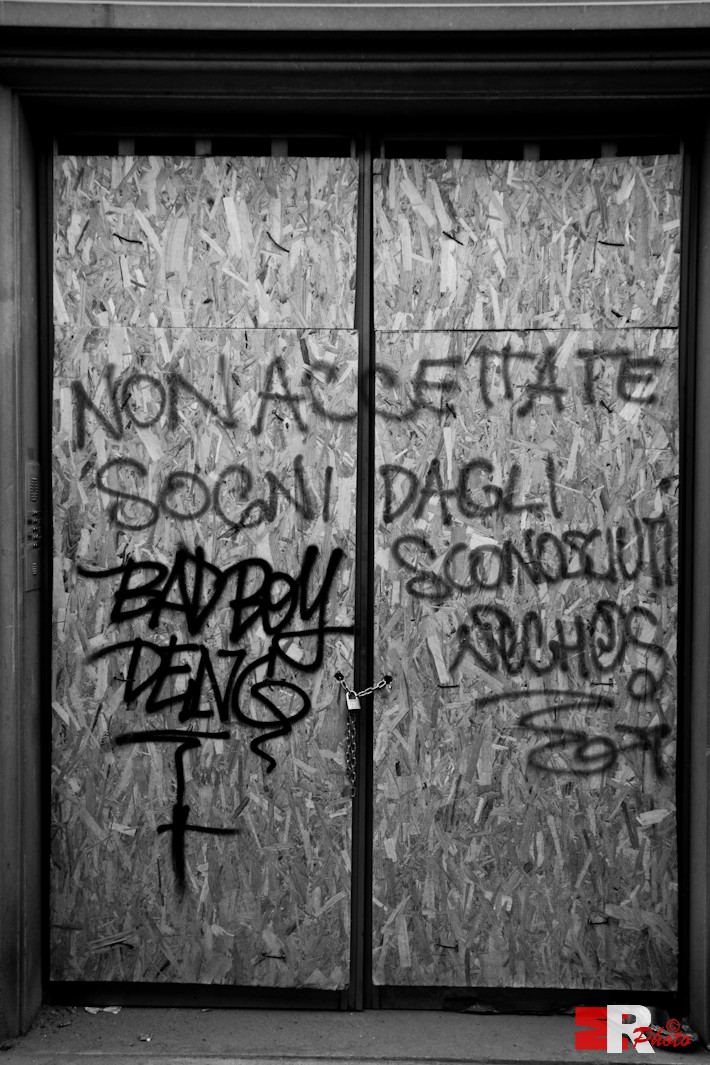 NON ACCETTATE
SOGNI DAGLI
SCONOSCIUTI
BAD BOY
DENS
ARCHES
R Photo ©